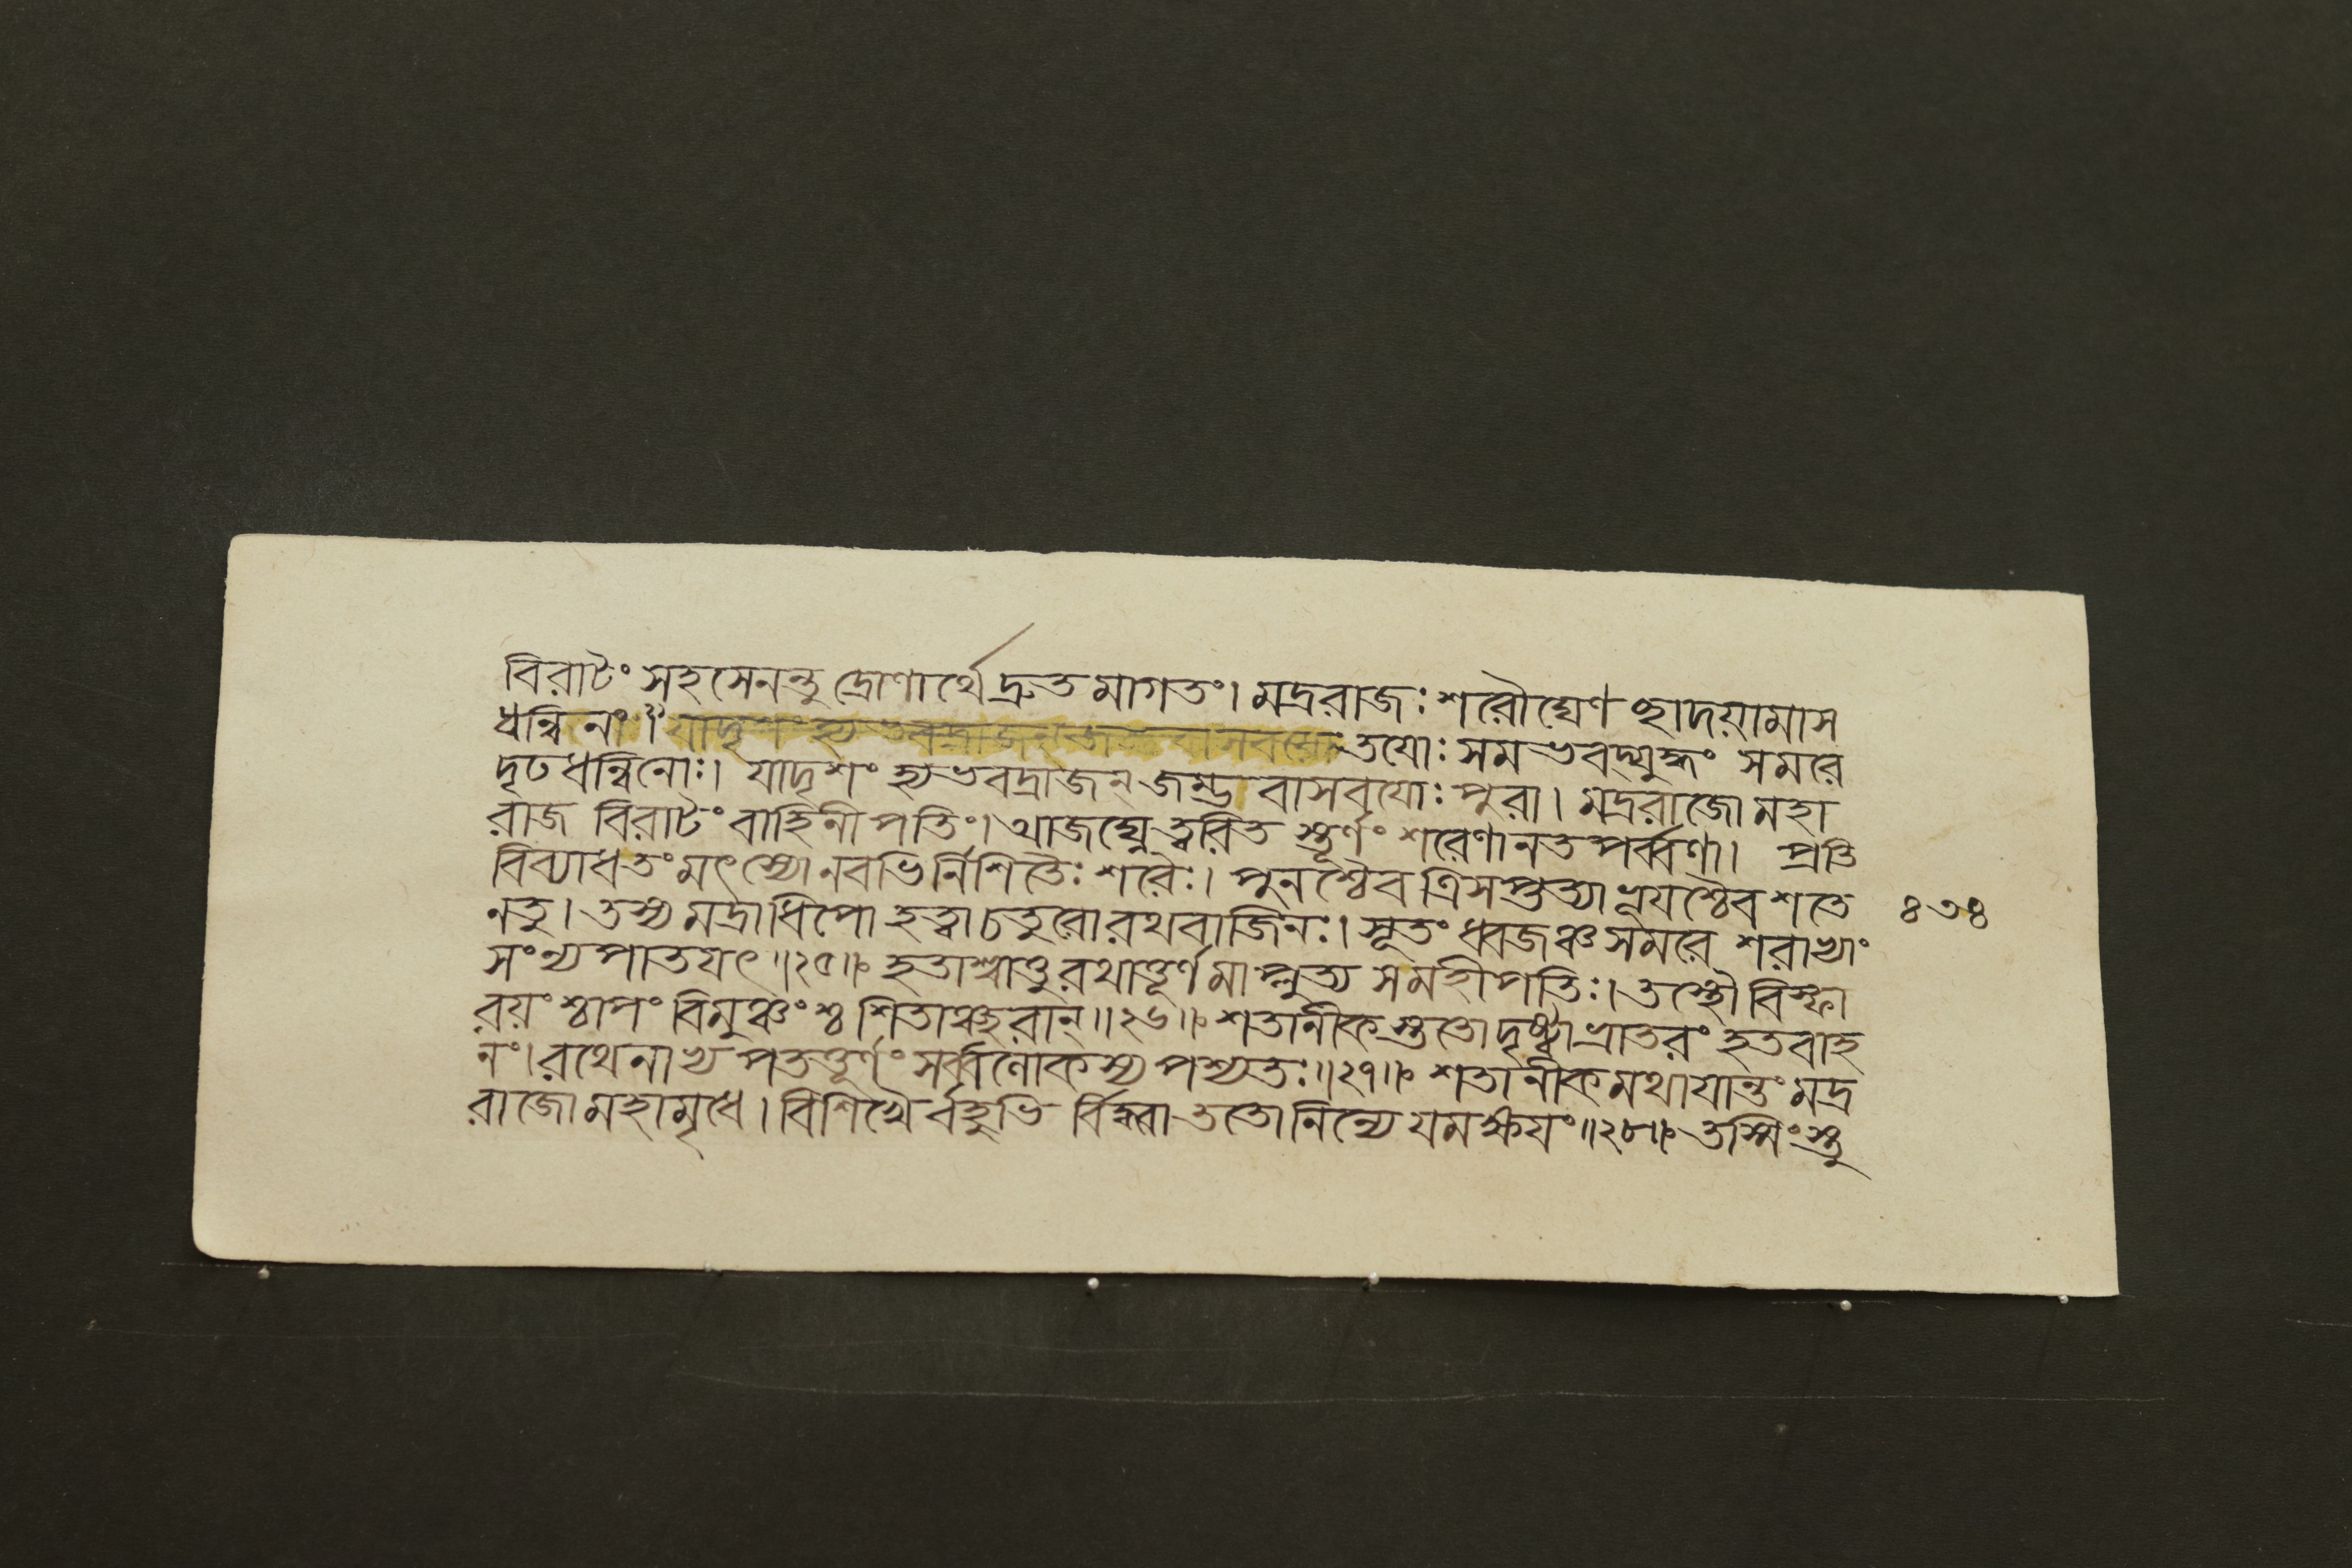 বিরাটং সহসেনন্তু দ্রোণার্থে দ্রুতমাগতং। মদ্ররাজঃ শরৌঘেণ ছাদয়ামাস
ধন্বিনং॥ যাদৃশং হ্যভবদ্রাজন্ বাসবয়োঃ তযোঃ সমভবদ্যুদ্ধং সমরে
দৃঢধন্বিনোঃ। যাদৃশং হ্যভবদ্রাজন্ জম্ভ বাসবযোঃ পুরা। মদ্ররাজো মহা
রাজ বিরাটং বাহিনীপতিং। আজঘ্নে ত্বরিত স্তূর্ণং শরেণানতপর্ব্বণা। প্রতি
বিব্যাধতং মৎস্যো নবভির্নিশিতৈঃ শরৈঃ। পুনশ্চৈব ত্রিসপ্তত্যা ভূযশ্চৈব শতে
নতু। তস্য মদ্রাধিপো হত্বা চতুরো রথবাজিনঃ। সূতং ধ্বজঞ্চ সমরে শরাভ্যাং
৪৩৪
সংন্যপাতযৎ॥২৫॥ হতাশ্বাত্তু রথাত্তূর্ণমাপ্লুত্য সমহীপতিঃ। তস্থৌ বিস্ফা
রয়ংশ্চাপং বিমুঞ্চংশ্চ শিতাঞ্ছরান্॥২৬॥ শতানীকস্তুতো দৃষ্ট্বা ভ্রাতরং হতবাহ
নং। রথেনাভ্যপতত্তূর্ণং সর্ব্বলোকস্য পশ্যতঃ॥২৭॥ শতানীকমথাযান্তং মদ্র
রাজো মহামৃধে। বিশিখৈর্বহুভি র্বিদ্ধ্বা ততো নিন্যে যমক্ষযং॥২৮॥ তস্মিংস্তু